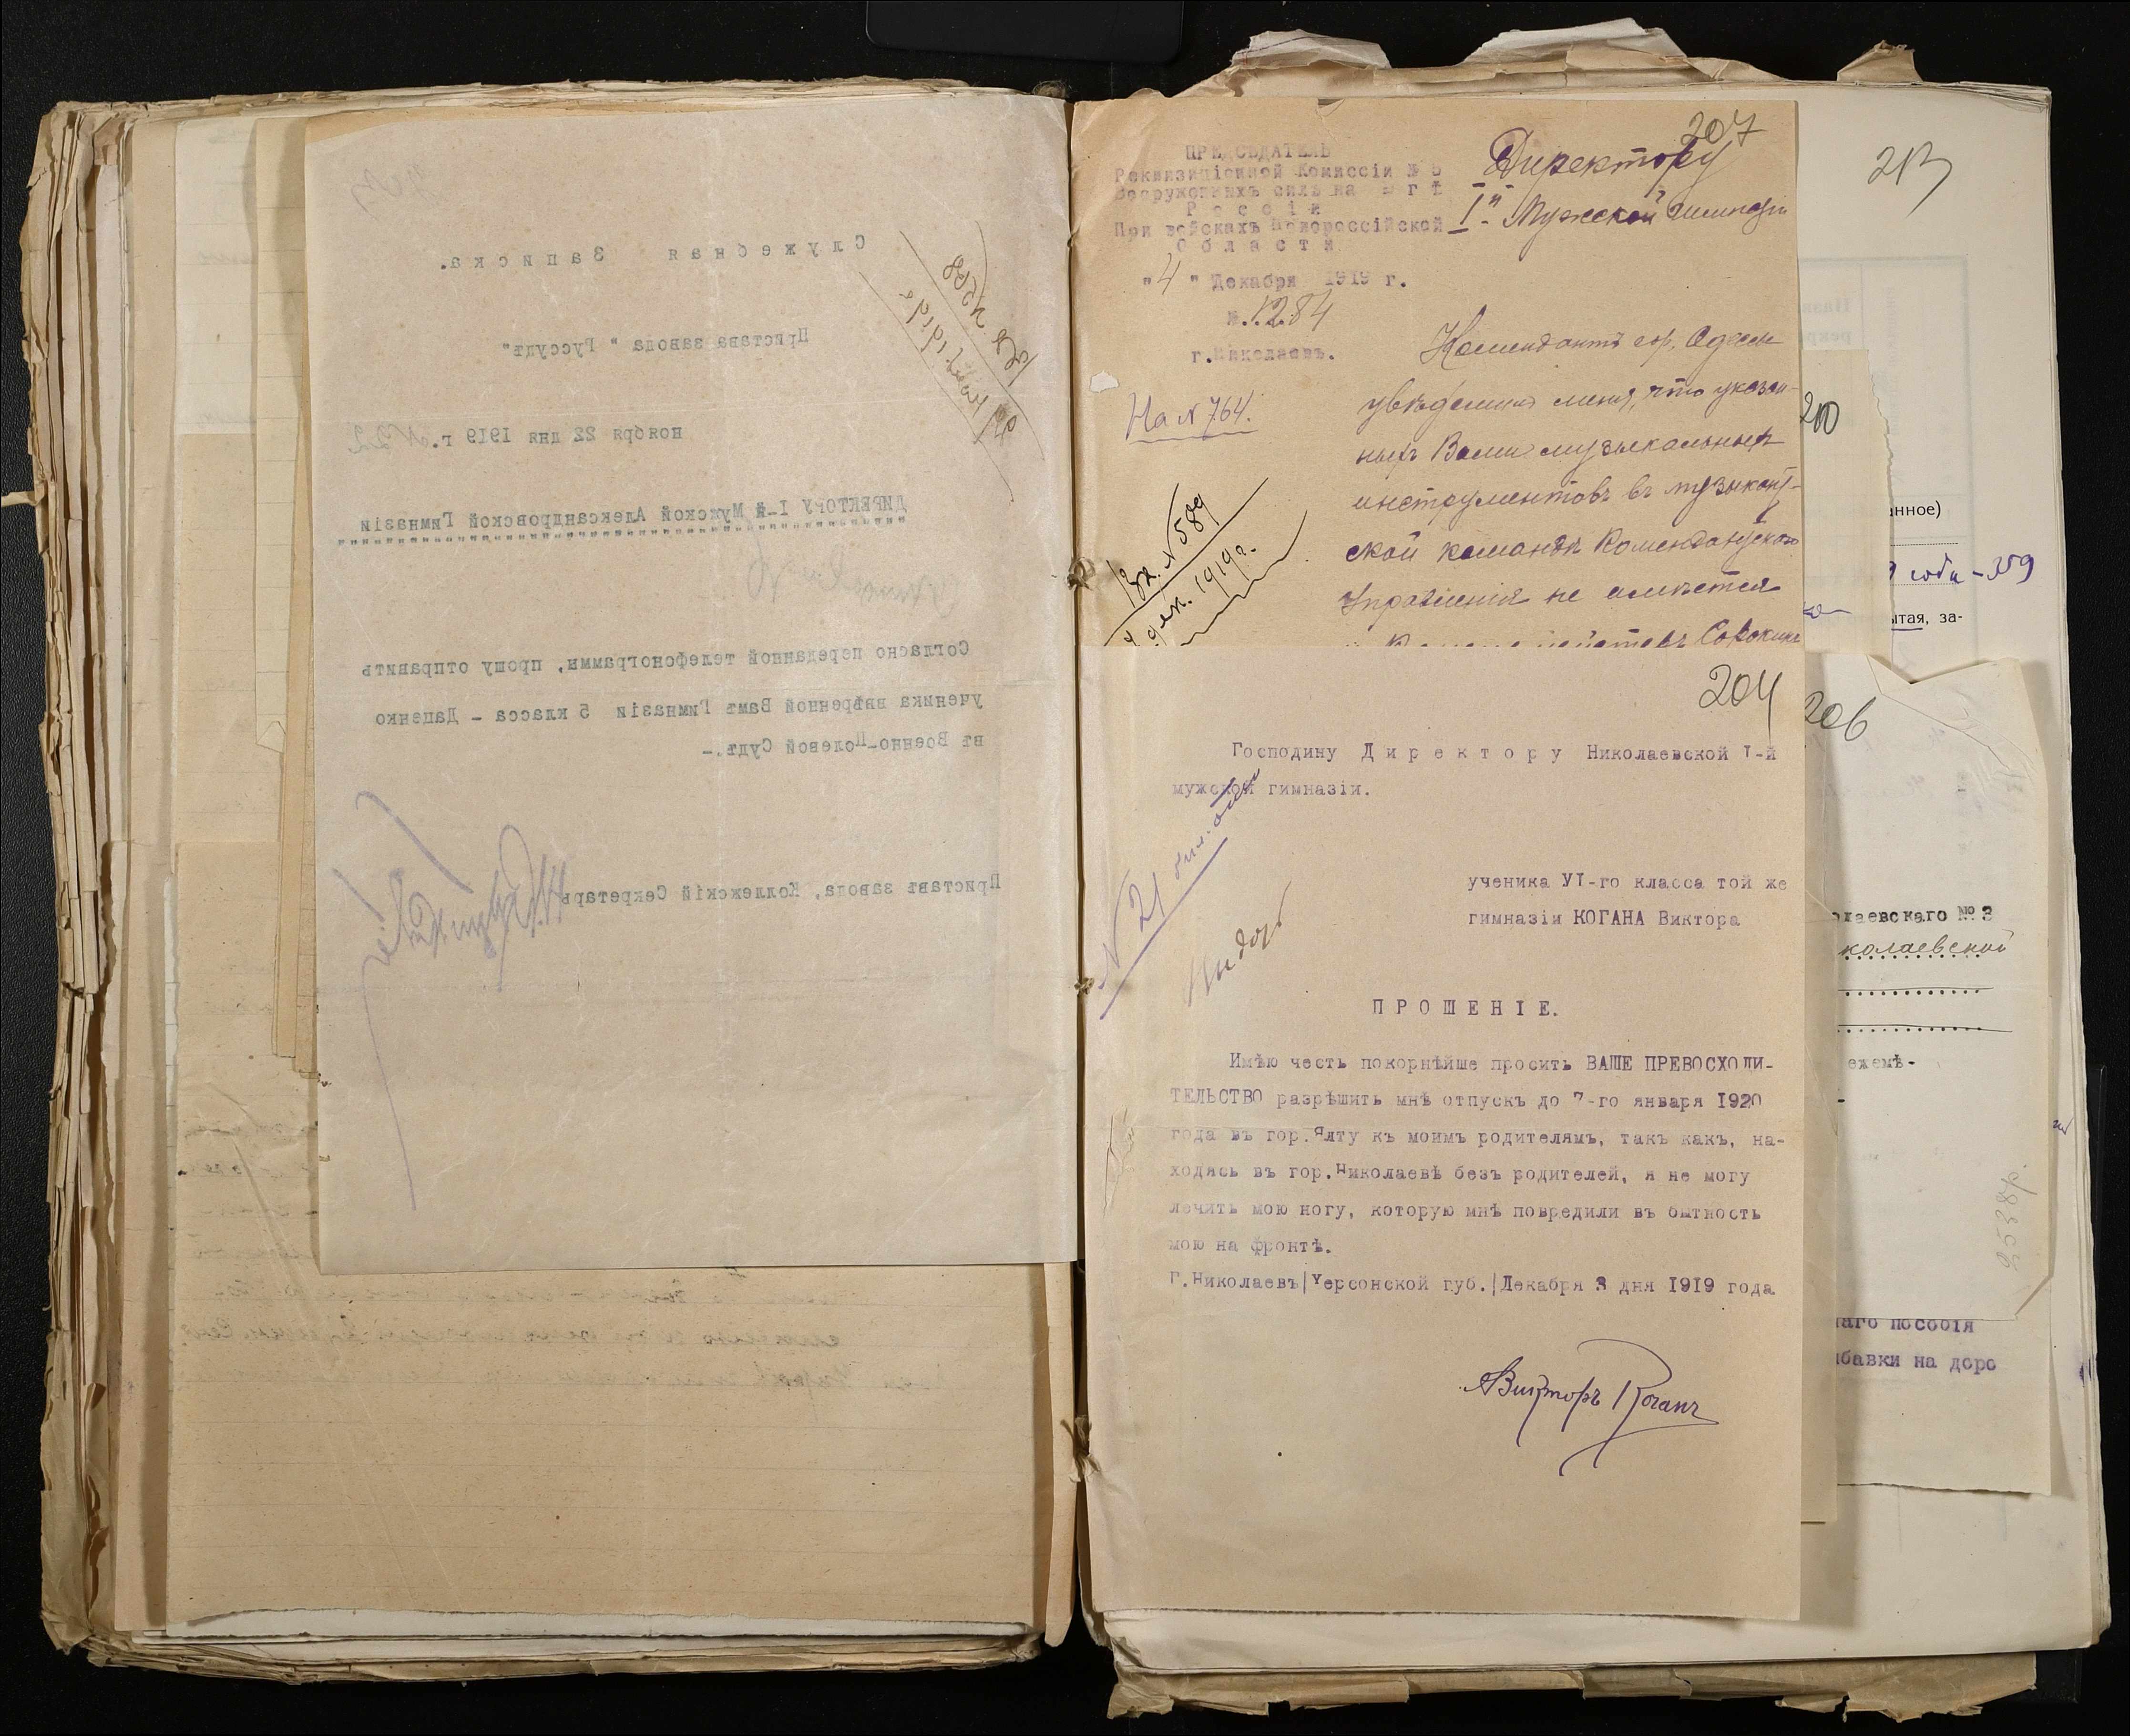 Служебная Записка.
Пристава завода " Руссудъ"
ноября 22 дня 1919 г. № 22
Вх. № 568
ДИРЕКТОРУ I-й Мужской Александровской Гимназіи
Согласно переданной телефонограммы, прошу отправить
ученика ввѣренной Вамъ Гимназіи 5 класса - Даценко
въ Военно-Полевой Судъ.-
Приставъ завода, Коллежскій Секретарь
207
ПРЕДСѢДАТЕЛЬ
Реквизиціонной Комиссіи № 5
Вооруженныхъ силъ на Югѣ
Россіи
При войскахъ Новороссійской
Области
"4" Декабря 1919 г.
№ 1284
г. Николаевъ.
На № 764.
Вх. № 589
4 дек. 1919 г.
Директору
Iй Мужской Гимназіи
Комендантъ гор. Одессы
увѣдомилъ меня, что указан-
ныхъ Вами музыкальныхъ
инструментовъ въ музыкант-
ской командѣ Комендантскаго
Управленія не имѣется
204
Господину Директору Николаевской I-й
мужской гимназіи.
№ 21
ученика УI-го класса той же
гимназіи КОГАНА Виктора
ПРОШЕНІЕ.
Имѣю честь покорнѣйше просить ВАШЕ ПРЕВОСХОДИ-
ТЕЛЬСТВО разрѣшить мнѣ отпускъ до 7-го января 1920
года въ гор.Ялту къ моимъ родителямъ, такъ какъ, на-
ходясь въ гор.Николаевѣ безъ родителей, я не могу
лечить мою ногу, которую мнѣ повредили въ бытность
мою на фронтѣ.
Г.Николаевъ|Херсонской губ.|Декабря 3 дня 1919 года
Викторъ Коганъ
213
200
нное)
года - 359
ытая, за-
206
олаевскаго № 3
колаевской
ежемѣ-
аго пособія
бавки на доро